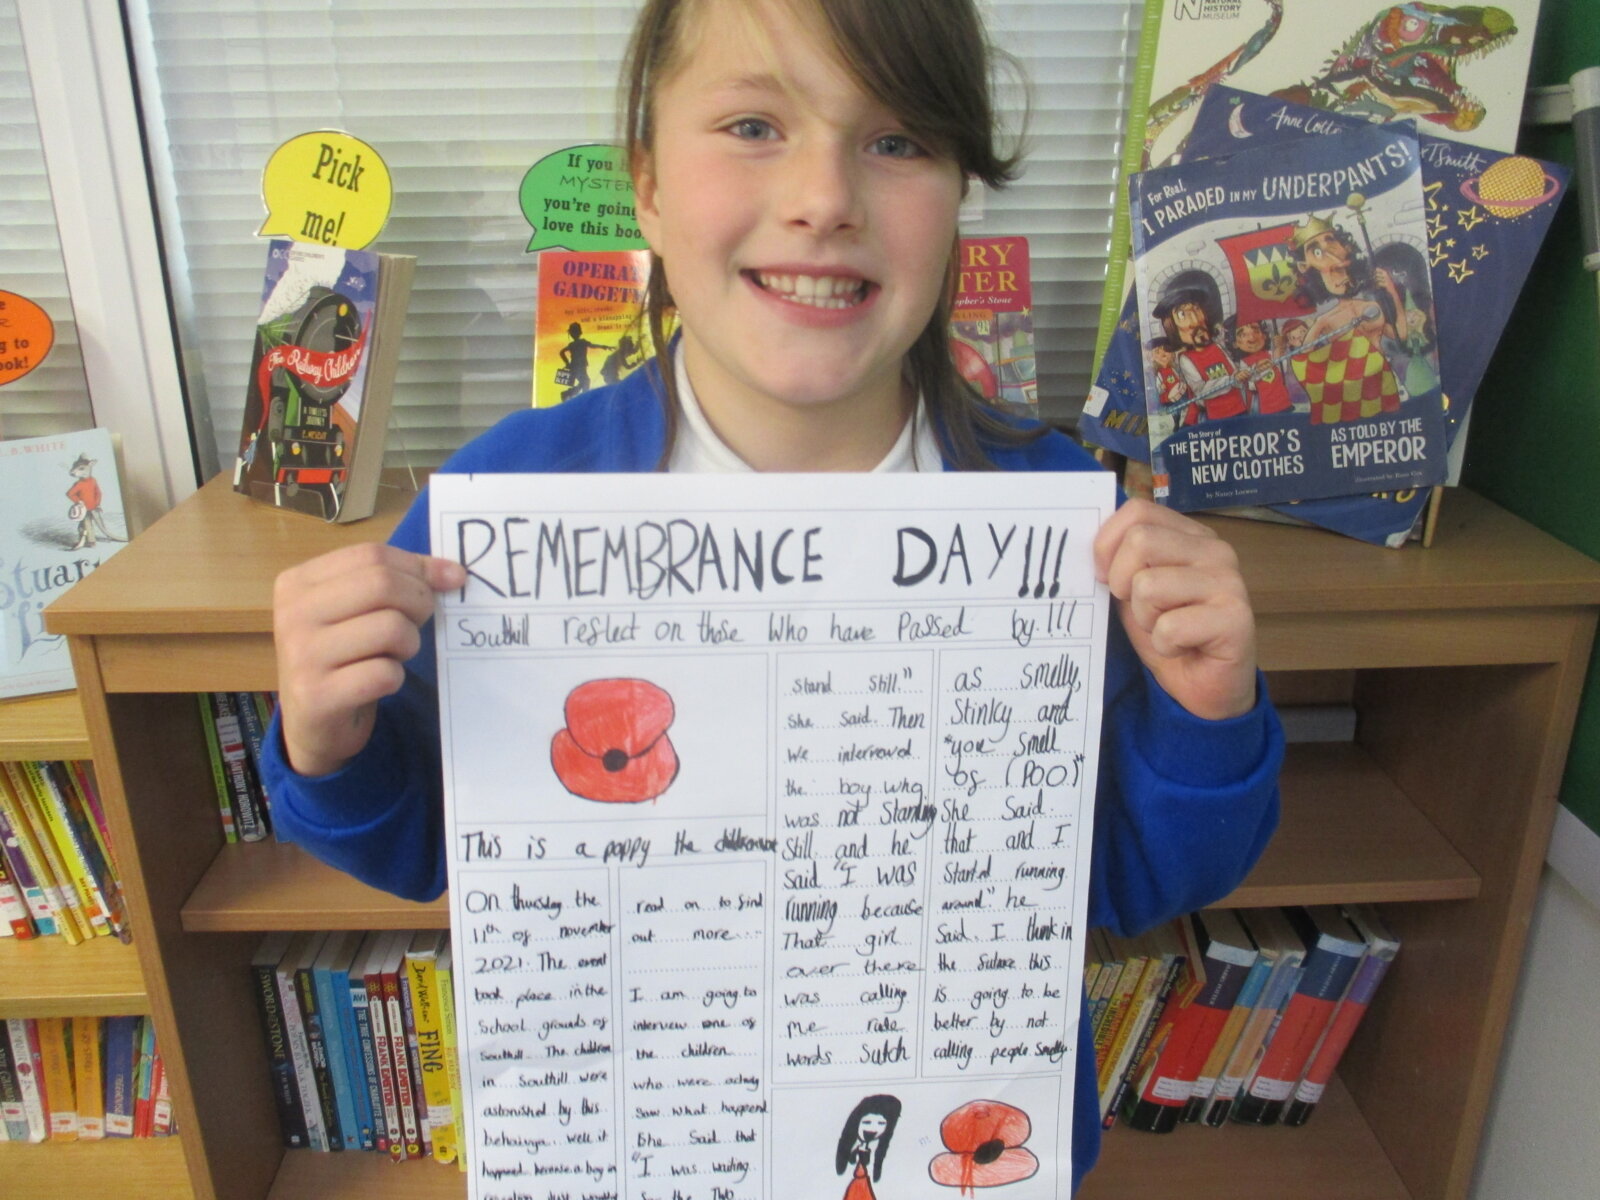 Pick
me!
If you
MYSTER
you're going
love this boo
The Railway Children
OPERAT
GADGETM
RY
TER
NATURAL
HISTORY
MUSEUM
Anne
T Smith
For Real,
I PARADED IN MY UNDERPANTS!
The Story of
THE EMPEROR'S
NEW CLOTHES
AS TOLD BY THE
EMPEROR
by Nancy Loewen
.B. WHITE
Stuar
Li
ok!
REMEMBRANCE DAY!!!
Southill reflect on those who have Passed by!!!
This is a poppy the
On thursday the
11th of november
2021. The event
took place in the
School grounds of
Southill. The children
in Southill were
astonished by this
behaivya. well it
happened because a boy in
read on to find
out more....
I am going to
interview one of
the children
who were actuly
Saw what happend
She Said that
"I was waiting
Stand Still."
She Said. Then
We interviewed
the boy who
was not Standing
Still and he
Said "I was
running because
That girl
over there
was calling
me rude
words Sutch
as smelly,
Stinky and
"you smell
of (POO)"
She Said
that and I
Started running
around" he
Said. I think in
the future this
is going to be
better by not
calling people Smelly.
SWORD STONE
FRANK EINSTEIN
FRANK EINSTEIN
FING
ANTHONY HOROWITZ